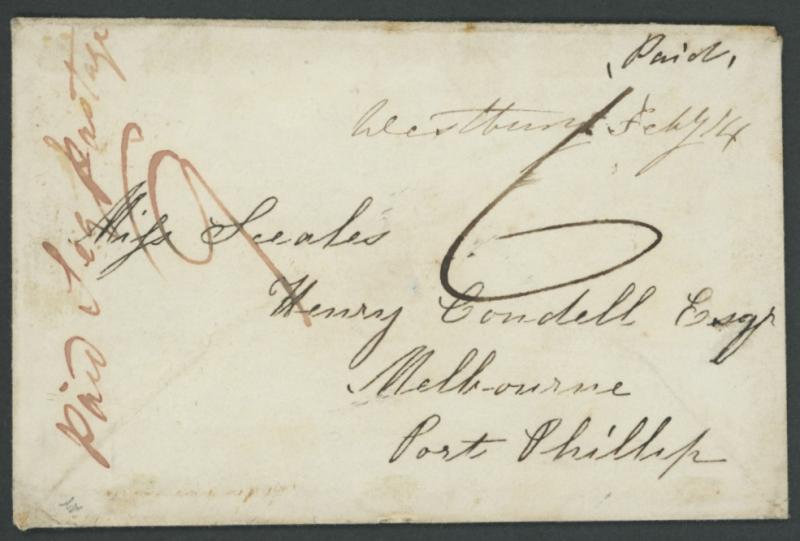 Paid
Westbury Feby 14
6
Miss Scales
Henry Condell Esqr
Melbourne
Port Phillip
Paid Postage